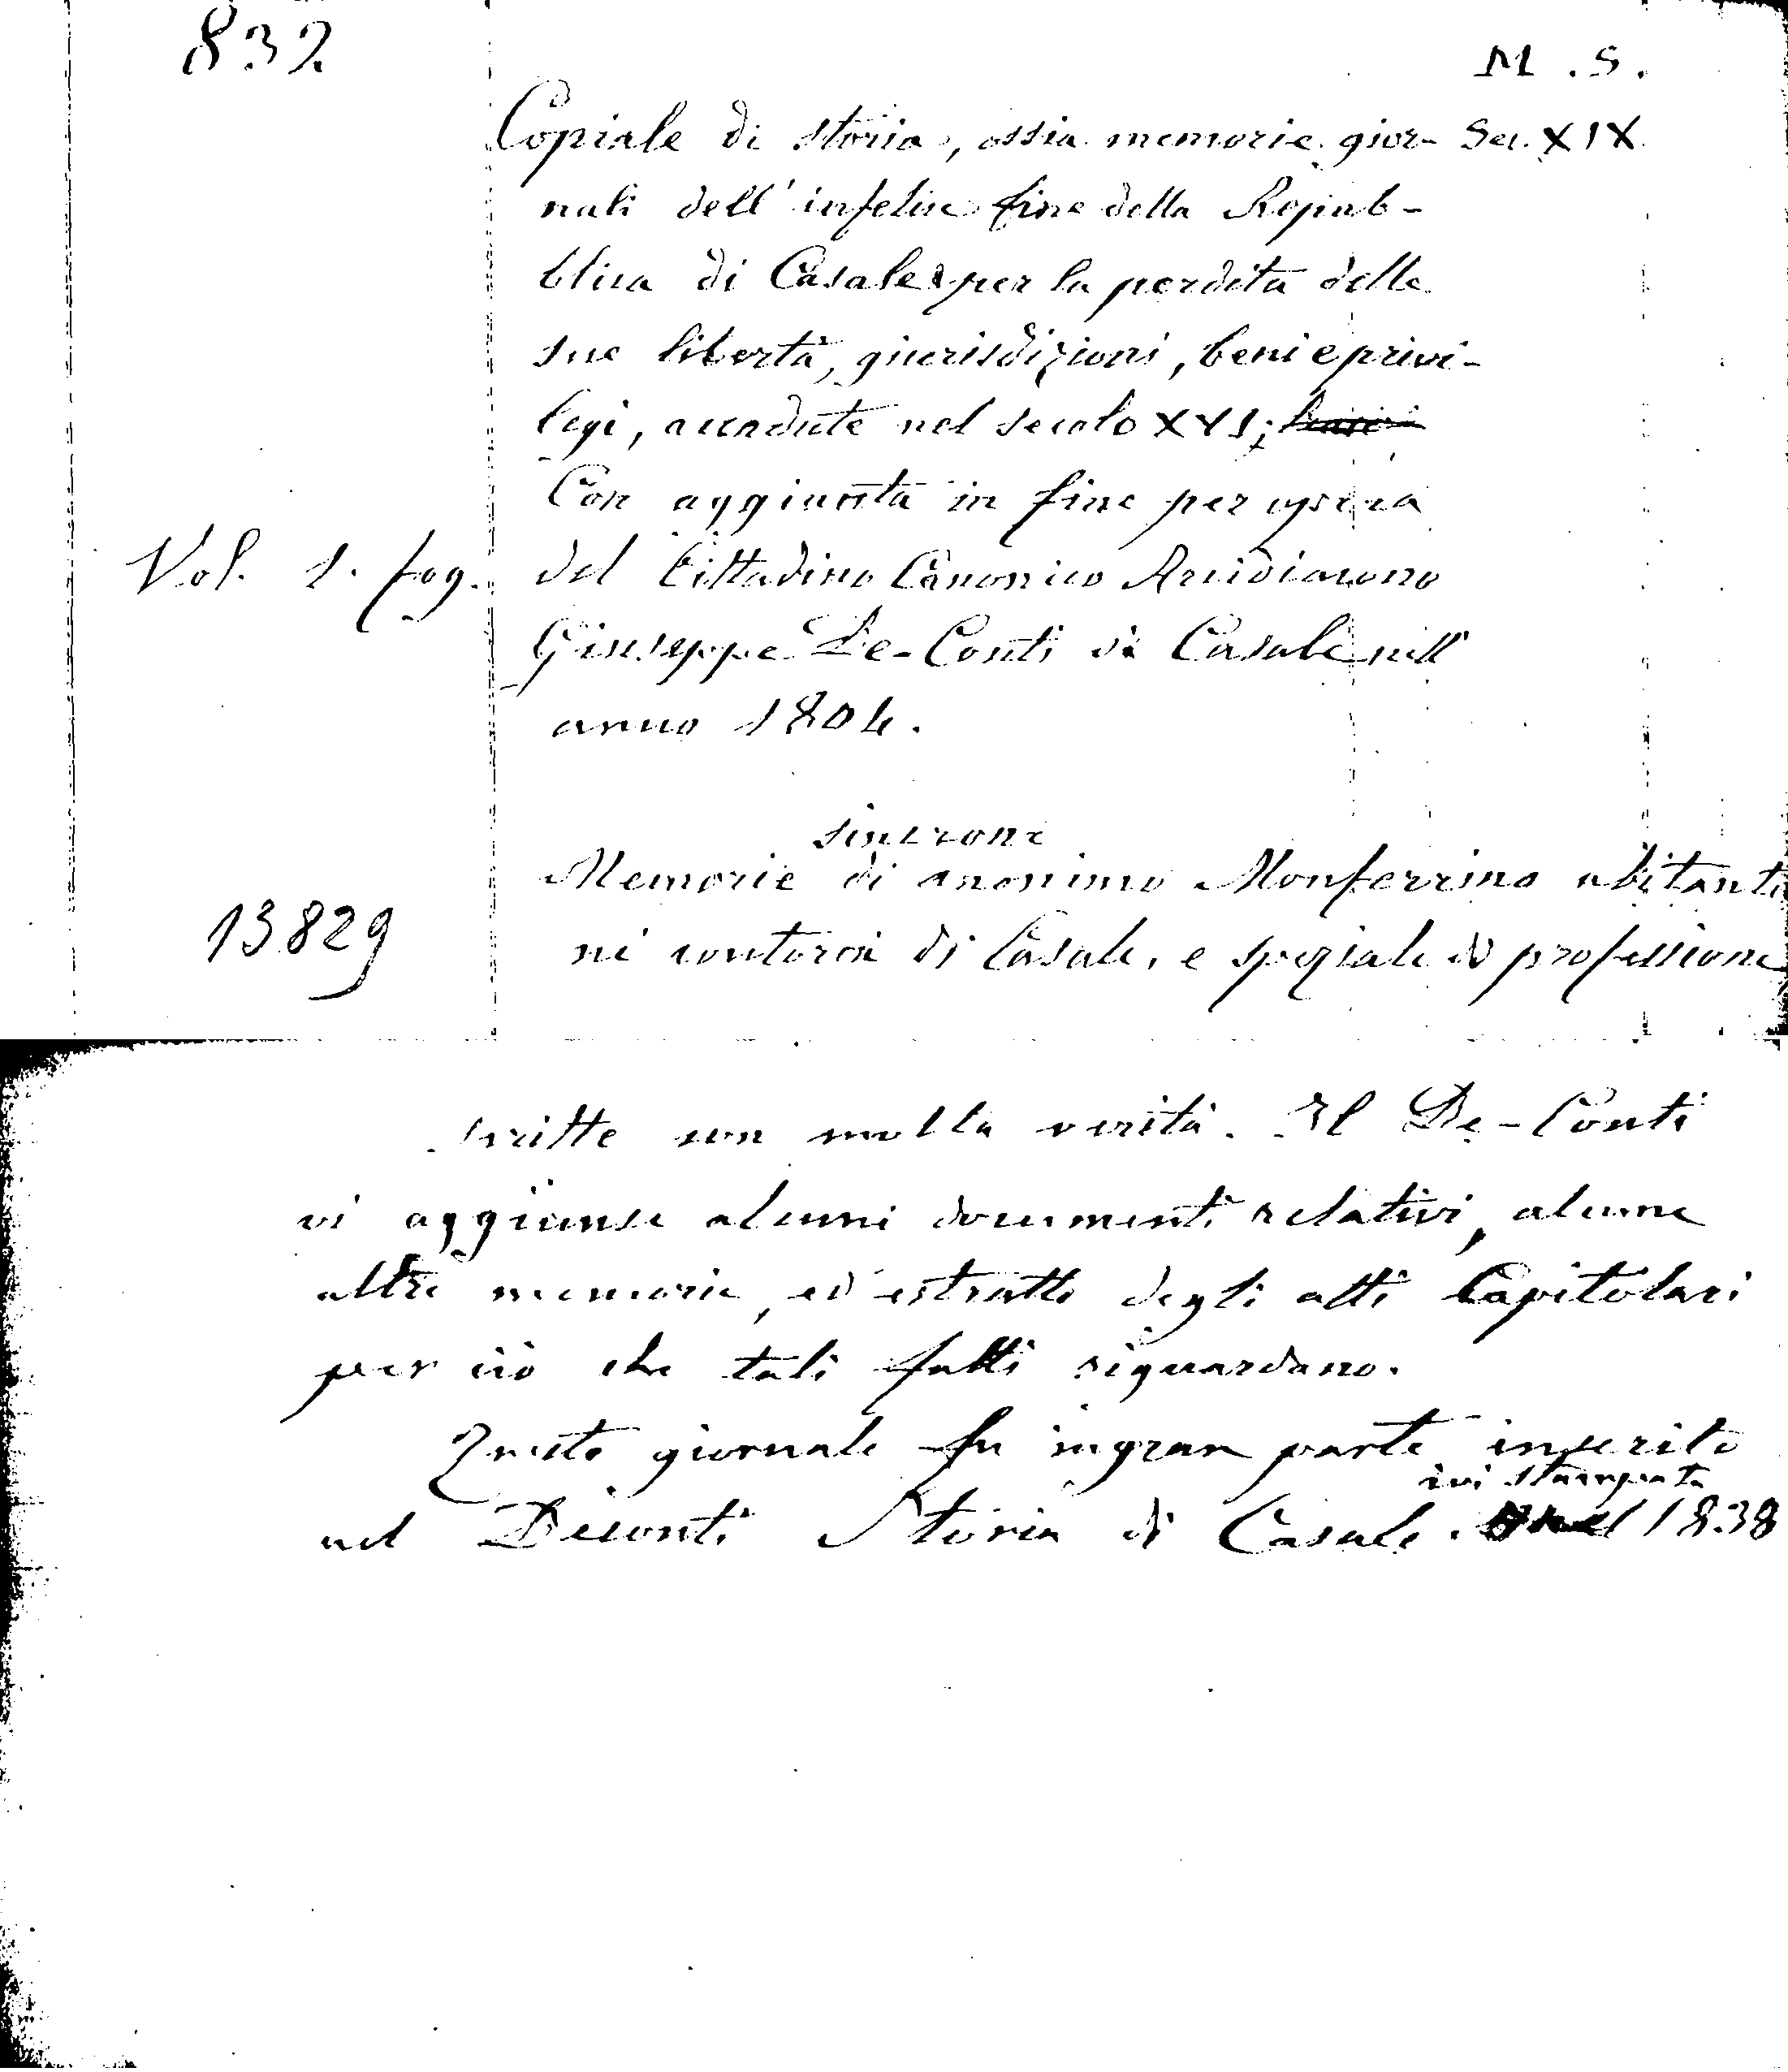 832
M. S.
Copiale di storia, ossia memorie gior- Sec. XIX
nali dell'infelice fine della Repub-
blica di Casale per la perdita delle
sue libertà, giurisdizioni, beni e privi-
legi, accadute nel secolo XVI;
Con aggiunta in fine per opera
Vol. 1. fog. del Cittadino Canonico Arcidiacono
Giuseppe De-Conti di Casale nell'
anno 1804.
sincrone
Memorie di anonimo Monferrino abitante
13829 nei contorni di Casale, e speziale di professione
scritte con molta verità. Il De-Conti
vi aggiunse alcuni documenti relativi, alcune
altre memorie, ed estratti degli atti Capitolari
per ciò che tali fatti riguardano.
Questo giornale fu in gran parte inserito
ivi stampata
nel Deconti Storia di Casale. 1838